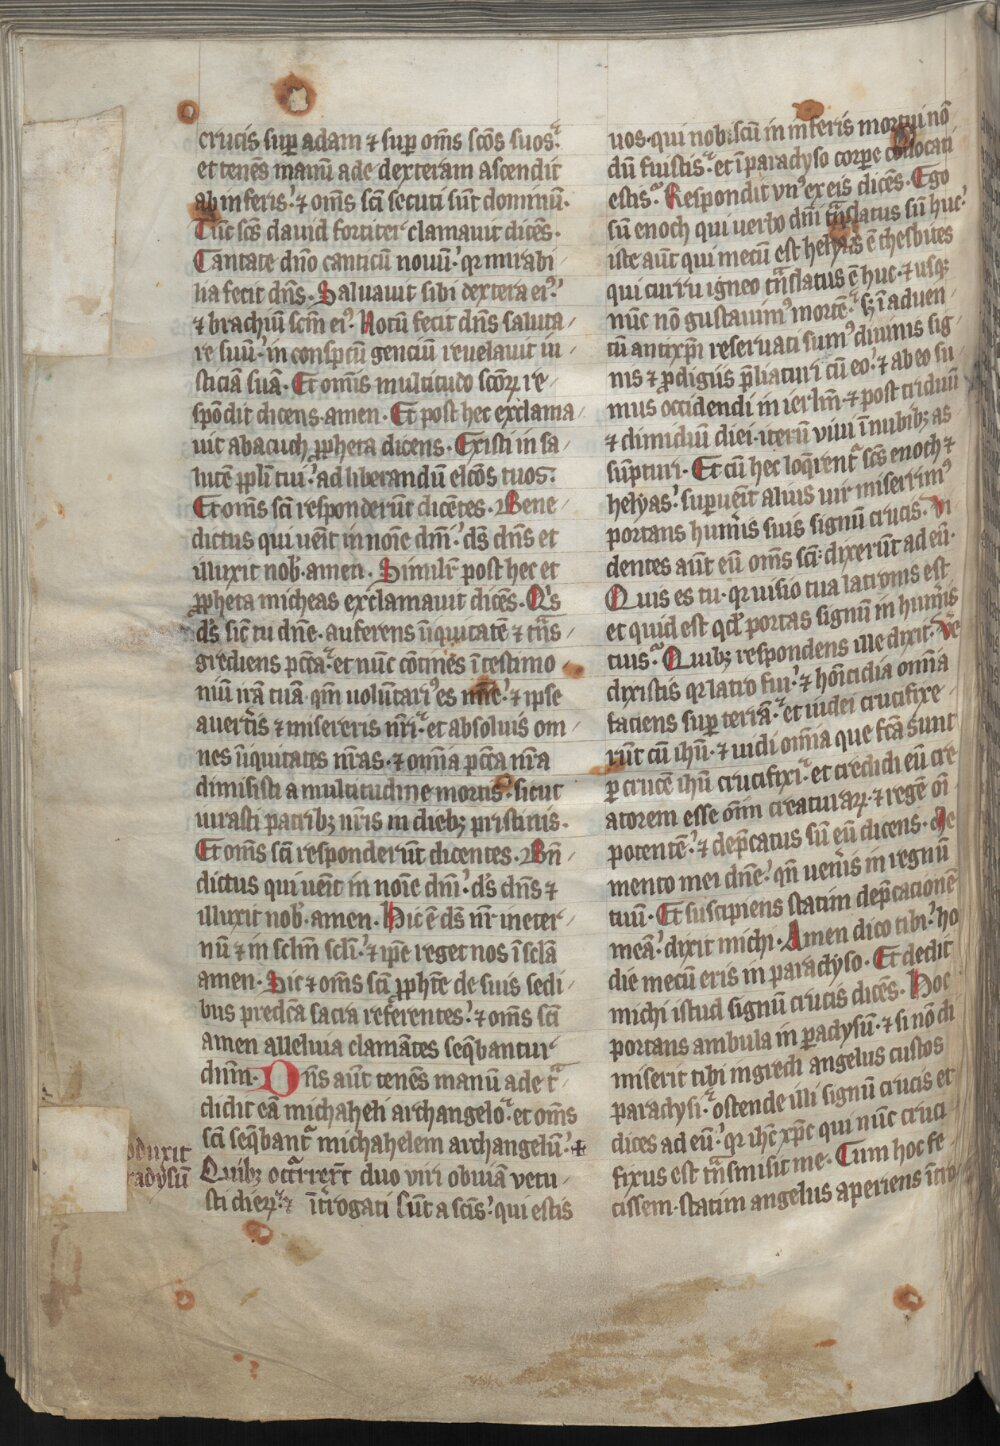 crucis sup adam ⁊ sup om̅s sc̅os suos.
et tene̅s manu̅ ade dexteram ascendit
ab inferis.' ⁊ om̅s sc̅i secuti su̅t dominu̅.
Tu̅c sc̅s dauid fortiter clamauit dice̅s.
Cantate dn̅o canticu̅ nouu̅.' qr mirabi
lia fecit dn̅s. Saluauit sibi dextera ei'.'
⁊ brachiu̅ sc̅m ei'. Notu̅ fecit dn̅s saluta
re suu̅.' in conspc̅u genciu̅ reuelauit iu
sticia̅ sua̅. Et omis multitudo sc̅oꝝ re
spo̅dit dicens. amen. Et post hec exclama
uit abacuch ꝓpheta dicens. Existi in sa
lute̅ ppl̅i tui.' ad liberandu̅ elc̅os tuos.
Et om̅s sc̅i responderu̅t dice̅tes. Bene
dictus qui ue̅it in no̅ie dn̅i.' ds̅ dn̅s et
illuxit nob̅. amen. Similr̅ post hec et
ꝓpheta micheas exclamauit dice̅s. Q's
ds̅ sic̅ tu dn̅e. auferens i̅iquitate̅ ⁊ tn̅s
grediens pc̅ta.' et nu̅c co̅tines i̅ testimo
niu̅ ira̅ tua̅. qm̅ uolu̅tari' es mi̅e.' ⁊ ipse
auert̅is ⁊ misereris nr̅i.' et absoluis om
nes i̅iquitates nr̅as. ⁊ om̅ia pc̅ta nr̅a
dimisisti a multitudine mortis. sicut
iurasti patribꝫ nr̅is in diebꝫ pristinis.
Et om̅s sc̅i responderu̅t dicentes. Bn̅
dictus qui ue̅it in no̅ie dn̅i.' ds̅ dn̅s ⁊
illuxit nob̅. amen. Hic e̅ ds̅ nr̅ in eter
nu̅ ⁊ in sclm̅ scl̅i.' ⁊ ip̅e reget nos i̅ scl̅a
amen. Sic ⁊ om̅s sc̅i ꝓphe̅te de suis sedi
bus predc̅a sacra refe̅rentes.' ⁊ om̅s sc̅i
amen alleluia clama̅tes seq̅bantur
dn̅m. Dn̅s au̅t tene̅s manu̅ ade t̅
didit ea̅ michaheli archangelo.' et om̅s
sc̅i seq̅bant̅ michahelem archangelu̅.' +
oduxit
radysu̅
Quibꝫ occ̅rrer̅t duo viri obuia̅ vetu
sti dieꝝ.' ⁊ i̅t̅rogati su̅t a sc̅is.' qui estis
uos. qui nobi̅scu̅ in inferis mortui no̅
du̅ fuistis.' et i̅ paradyso corpe collocati
estis. Respondit vn' ex eis dice̅s. Ego
su̅ enoch qui uerbo dn̅i tn̅slatus su̅ huc.'
iste au̅t qui mecu̅ est helyas e̅ thesbites
qui curru igneo tn̅slatus e̅ huc. ⁊ usqꝫ
nu̅c no̅ gustauim' morte̅.' sꝫ i̅ aduen
tu̅ antixp̅i reseruati sum' diuinis sig
nis ⁊ ꝓdigiis p̅liaturi cu̅ eo.' ⁊ ab eo su
mus occidendi in ierl̅m. ⁊ post triduu̅
⁊ dimidiu̅ diei. iteru̅ viui i̅ nubibꝫ as
su̅pturi. Et cu̅ hec loq̅rent̅ sc̅s enoch ⁊
helyas.' supuen̅it alius uir miserrim'
portans hum̅is suis signu̅ crucis. Vi
dentes au̅t eu̅ om̅s sc̅i: dixeru̅t ad eu̅.
Quis es tu. qr uisio tua latronis est
et quid est qd̅ portas signu̅ in hum̅is
tuis. Quibꝫ respondens ille dixit. Ve̅
dixistis qr latro fui.' ⁊ ho̅icidia om̅ia
faciens sup terra̅.' et iudei crucifixe
ru̅t cu̅ ihu̅. ⁊ uidi om̅ia que fc̅a sunt
ꝑ cruce̅ ihu̅ crucifixi.' et credidi eu̅ cre
atorem esse om̅i creaturaꝝ. ⁊ rege̅ oi̅
potente̅.' ⁊ dep̅catus su̅ eu̅ dicens. Me
mento mei dn̅e.' qn̅ uen̅is in regnu̅
tuu̅. Et suscipiens statim dep̅catione̅
mea̅.' dixit michi. Amen dico tibi.' ho
die mecu̅ eris in paradyso. Et dedit
michi istud signu̅ crucis dice̅s. Hoc
portans ambula in paradysu̅. ⁊ si no̅ di
miserit tibi ingredi angelus custos
paradysi.' ostende illi signu̅ crucis et
dices ad eu̅.' qr ihc̅ xp̅c qui nu̅c cruci
fixus est tn̅smisit me. Cum hoc fe
cissem. statim angelus aperiens i̅tro